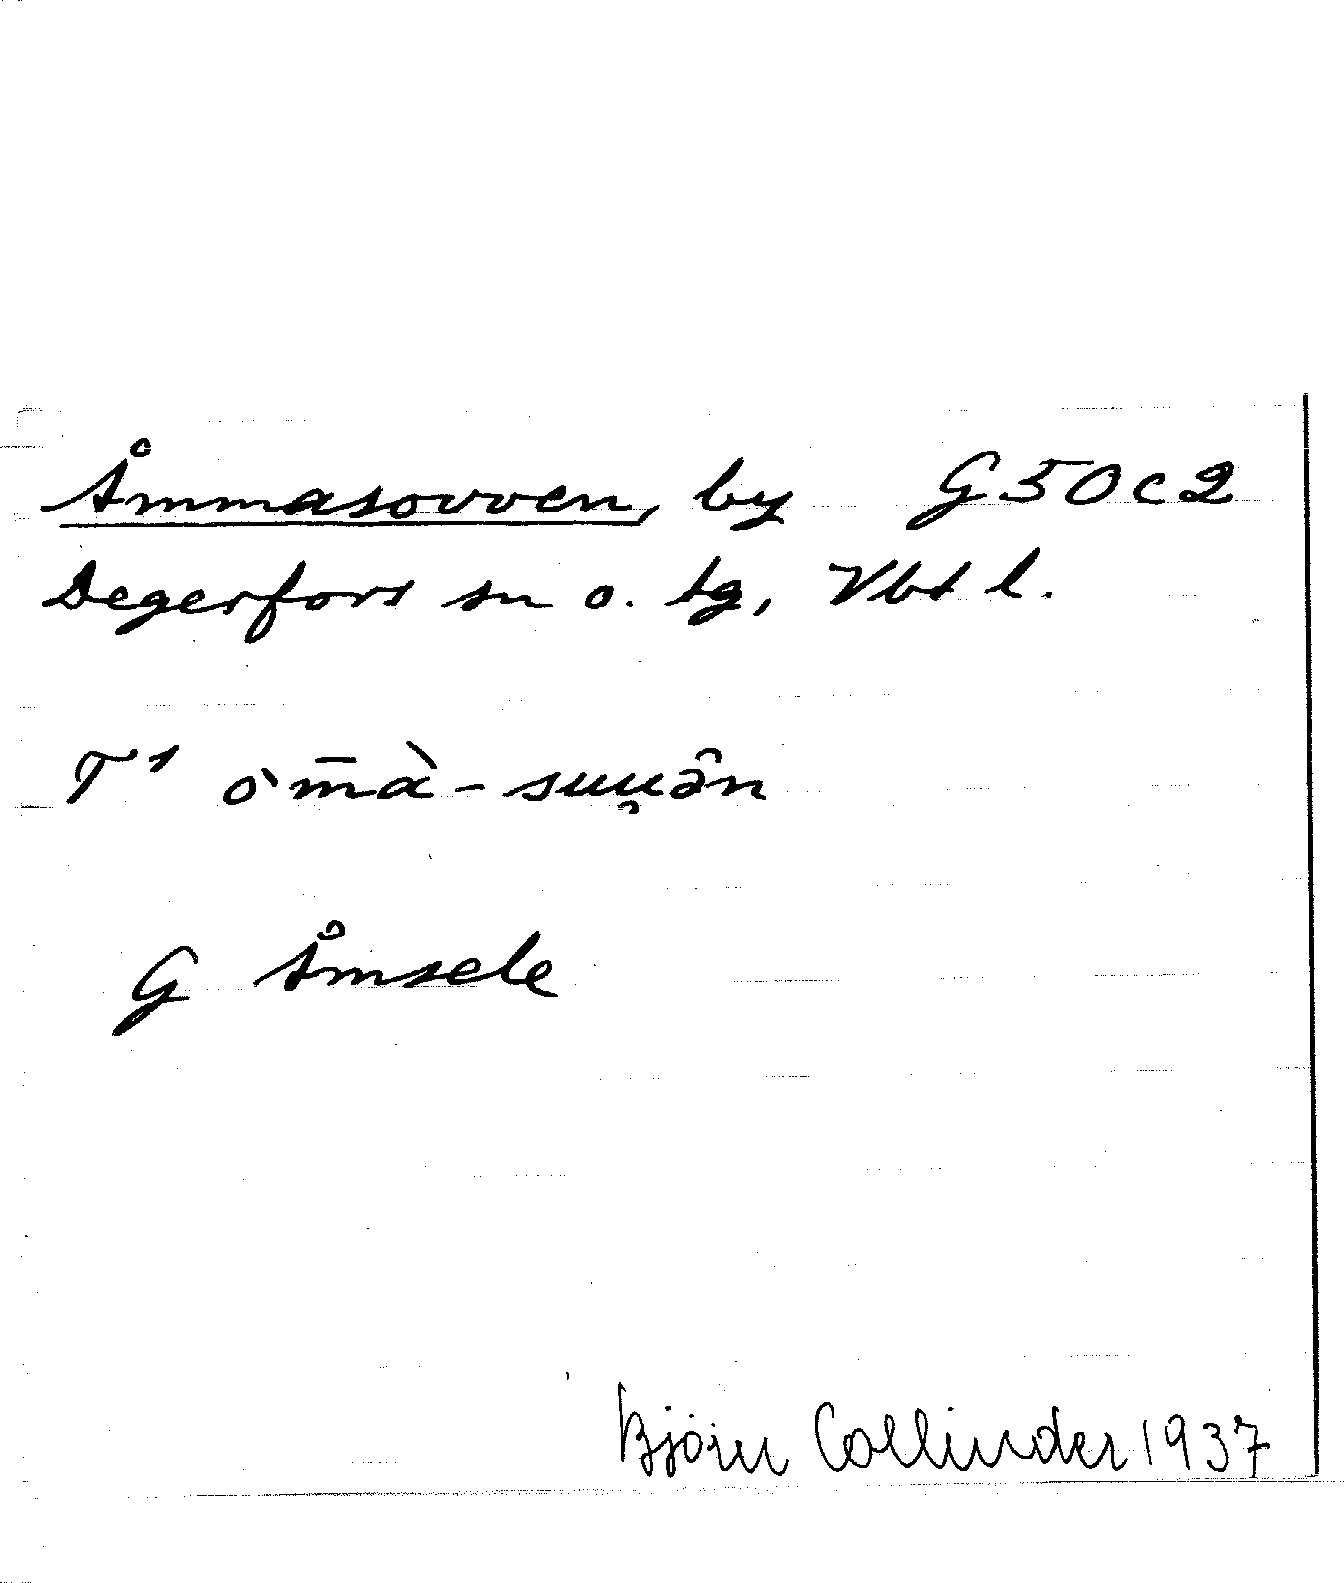 Åmmasovven, by G50c2
Degerfors sn o. tg, Vbt l.
T¹ o`m̄à-suu̯ə̑n
G Åmsele
Björn Collinder 1937